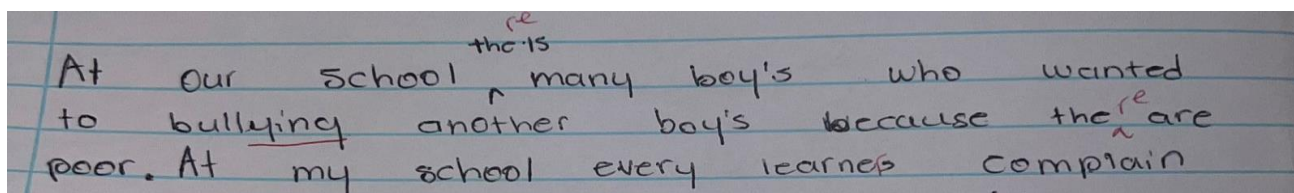 re
the is
At our school many boy's who wanted
to bullying another boy's because the re are
poor. At my school every learnes complain